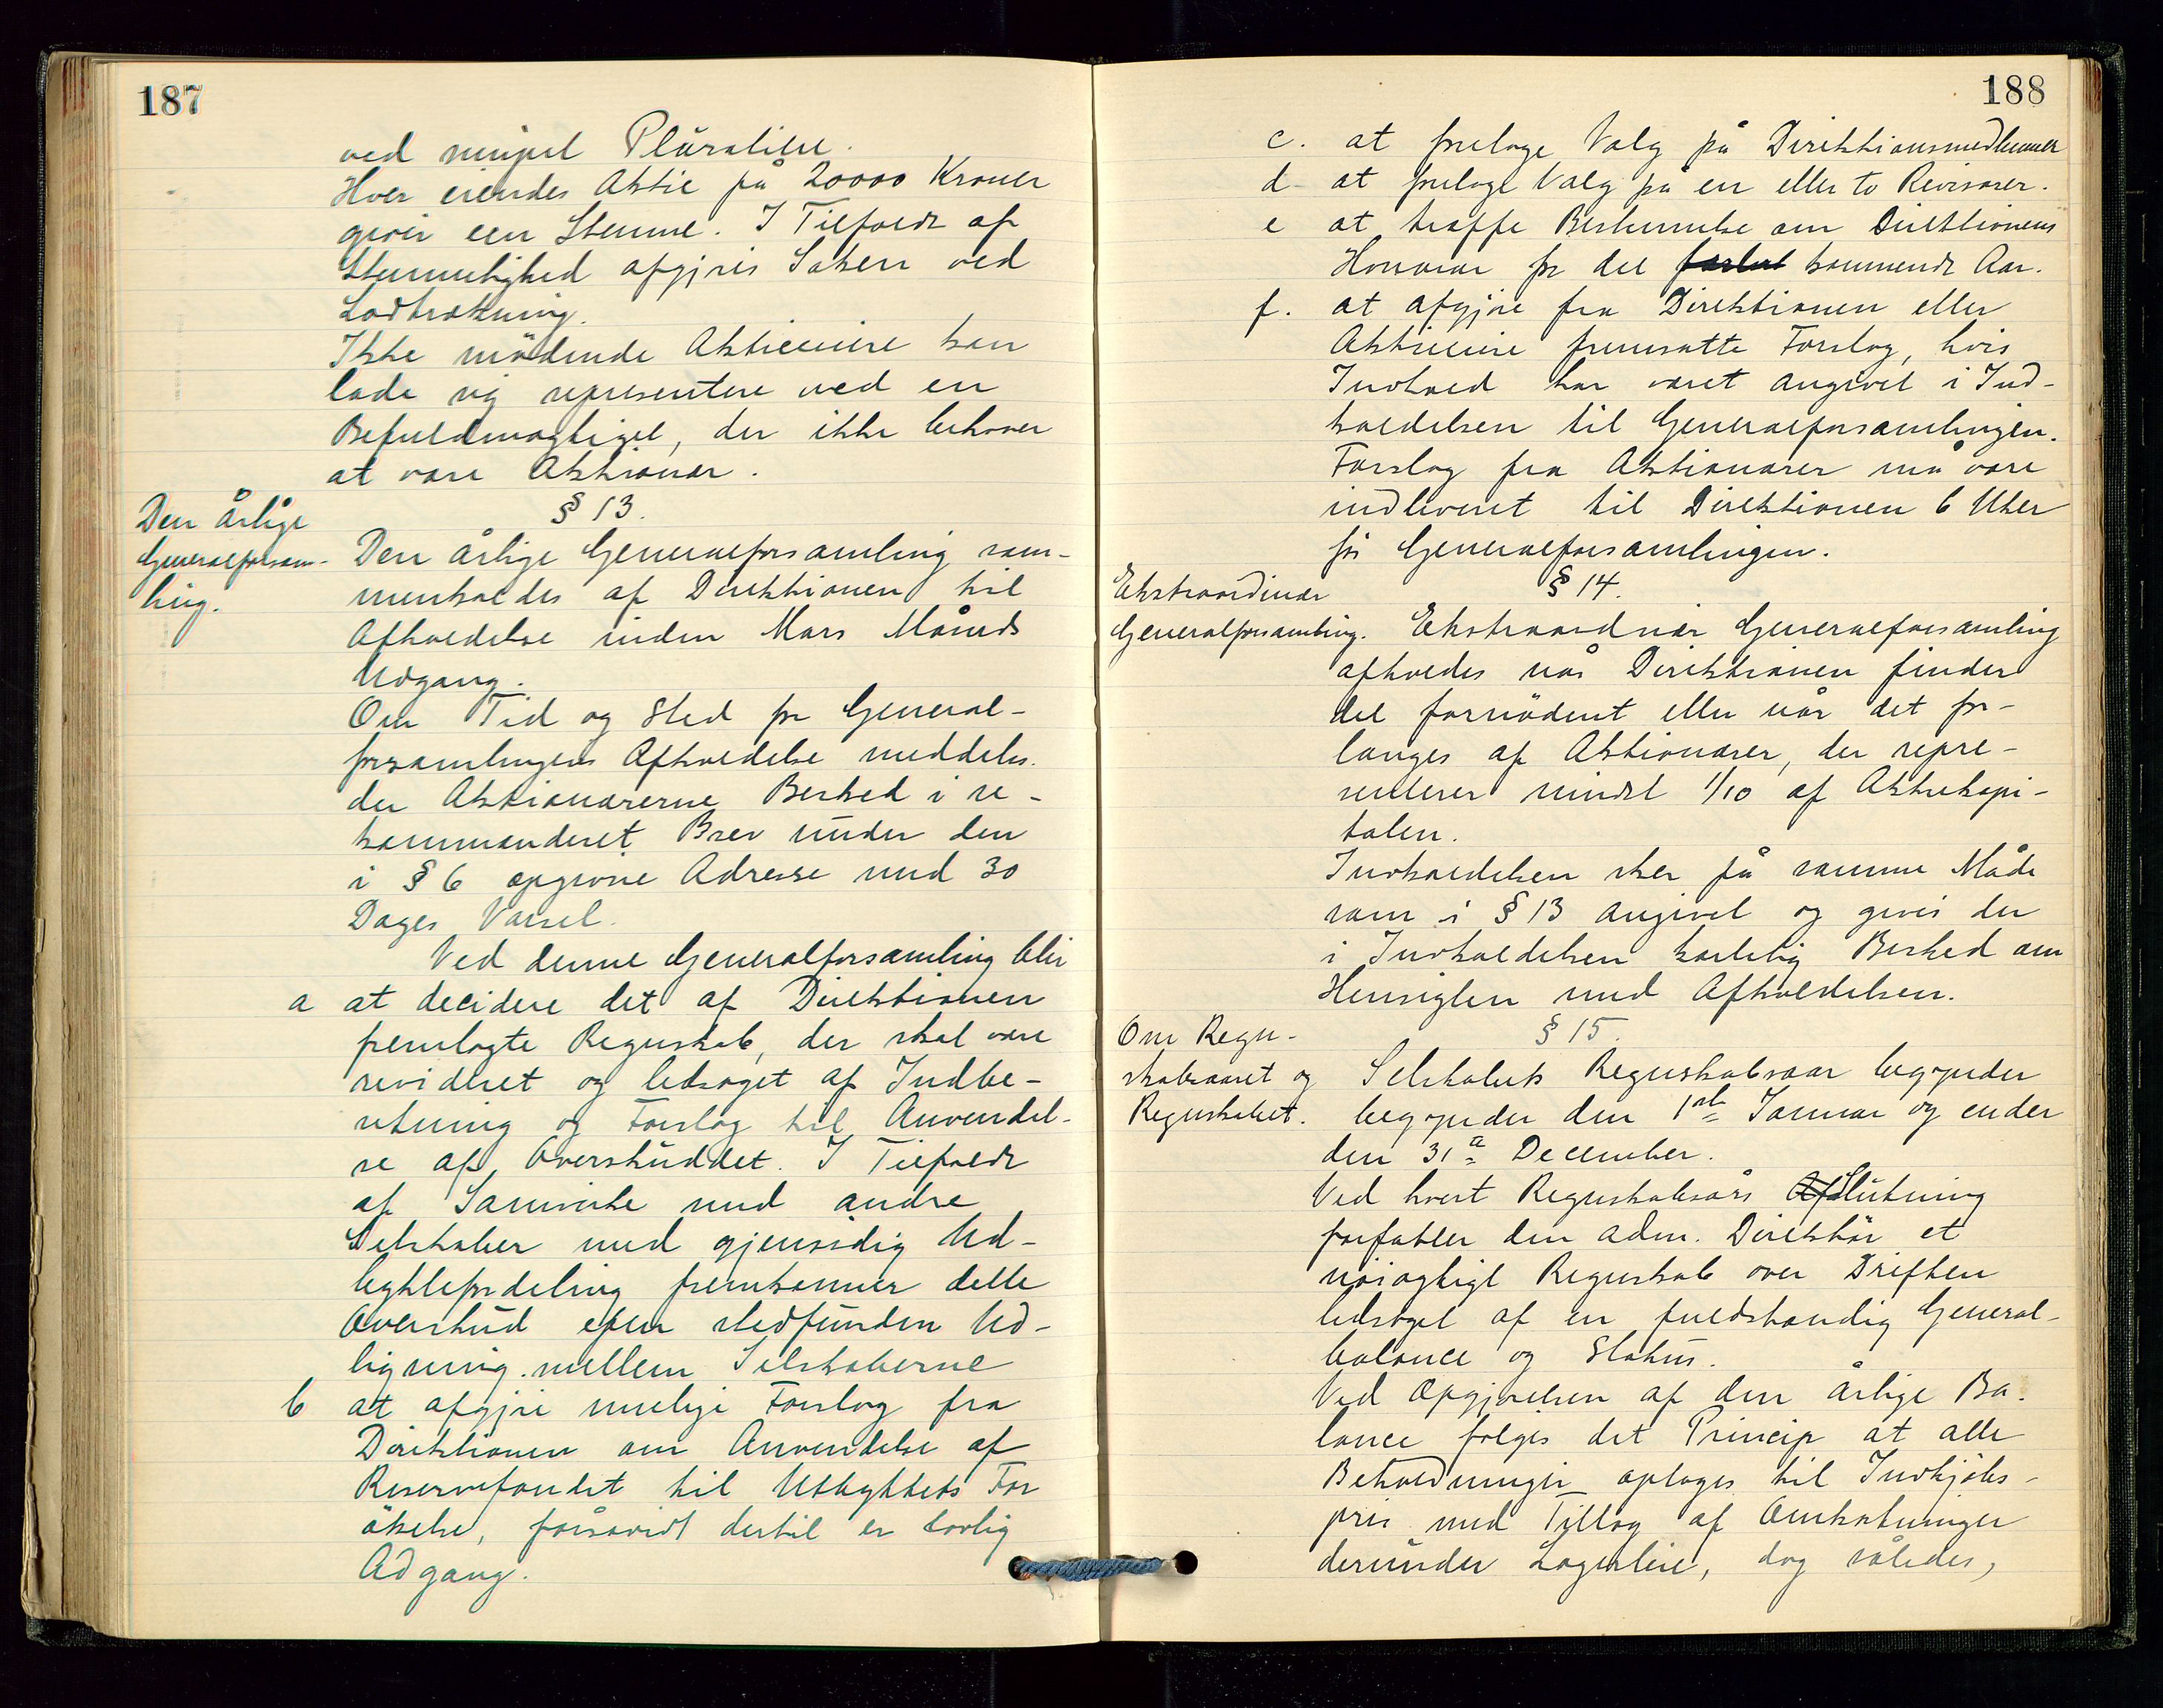 187
ved simpel Pluralitet.
Hver eiendes Aktie på 20000 Kroner
giver een Stemme. I Tilfælde af
Stemmelighed afgjøres Saken ved
Lodtrækning.
Ikke mödende Aktieeiere kan
lade sig representere ved en
Befuldmægtiget, der ikke behøver
at være Aktionær.
§ 13.
Den årlige
Generalforsam-
ling.
Den årlige Generalforsamling sam-
menkaldes af Direktionen til
Afholdelse inden Mars Måneds
Udgang.
Om Tid og Sted for General-
forsamlingens Afholdelse meddeles
der Aktionærerne Besked i re-
kommanderet Brev under den
i § 6 opgivne Adresse med 30
Dages Varsel.
Ved denne Generalforsamling blir
a at decidere det af Direktionen
fremlagte Regnskab, der skal være
revideret og ledsaget af Indbe-
retning og Forslag til Anvendel-
se af Overskuddet. I Tilfælde
af Samvirke med andre
Selskaber med gjensidig Ud-
bytteforde­ling fremkommer dette
Overskud efter stedfunden Ud-
ligning mellem Selskaberne
b at afgjøre mulige Forslag fra
Direktionen om Anvendelse af
Reservefondet til Utbyttets For
økelse, forsåvidt dertil er lovlig
Adgang.
188
c. at foretage Valg på Direktionsmedlemmer
d- at foretage Valg på en eller to Revisorer.
e at træffe Bestemmelse om Direktionens
Honorar for det forløbt kommende Aar.
f. at afgjøre fra Direktionen eller
Aktieeiere fremsatte Forslag, hvis
Indhold har været angivet i Ind-
kaldelsen til Generalforsamlingen.
Forslag fra Aktionærer må være
indleveret til Direktionen 6 Uker
før Generalforsamlingen.
§ 14.
Ekstraordinær
Generalforsamling.
Ekstraordnær Generalforsamling
afholdes når Direktionen finder
det fornødent eller når det for-
langes af Aktionærer, der repre-
senterer mindst 1/10 af Aktiekapi-
talen.
Indkaldelsen sker på samme Måde
som i § 13 angivet og gives der
i Indkaldelsen kortelig Besked om
Hensigten med Afholdelsen.
§ 15.
Om Regn-
skabsaaret og
Regnskabet.
Selskabets Regnskabsaar begynder
begynder den 1ste Januar og ender
den 31te December.
Ved hvert Regnskabsårs Afslutning
forfatter den adm. Direktør et
nøiagtigt Regnskab over Driften
ledsaget af en fuldstændig General-
balance og Status.
Ved Opgjørelsen af den årlige Ba-
lance følges det Princip at alle
Beholdninger optages til Indkjøbs-
pris med Tillæg af Omkostninger
derunder Lagerleie, dog således,